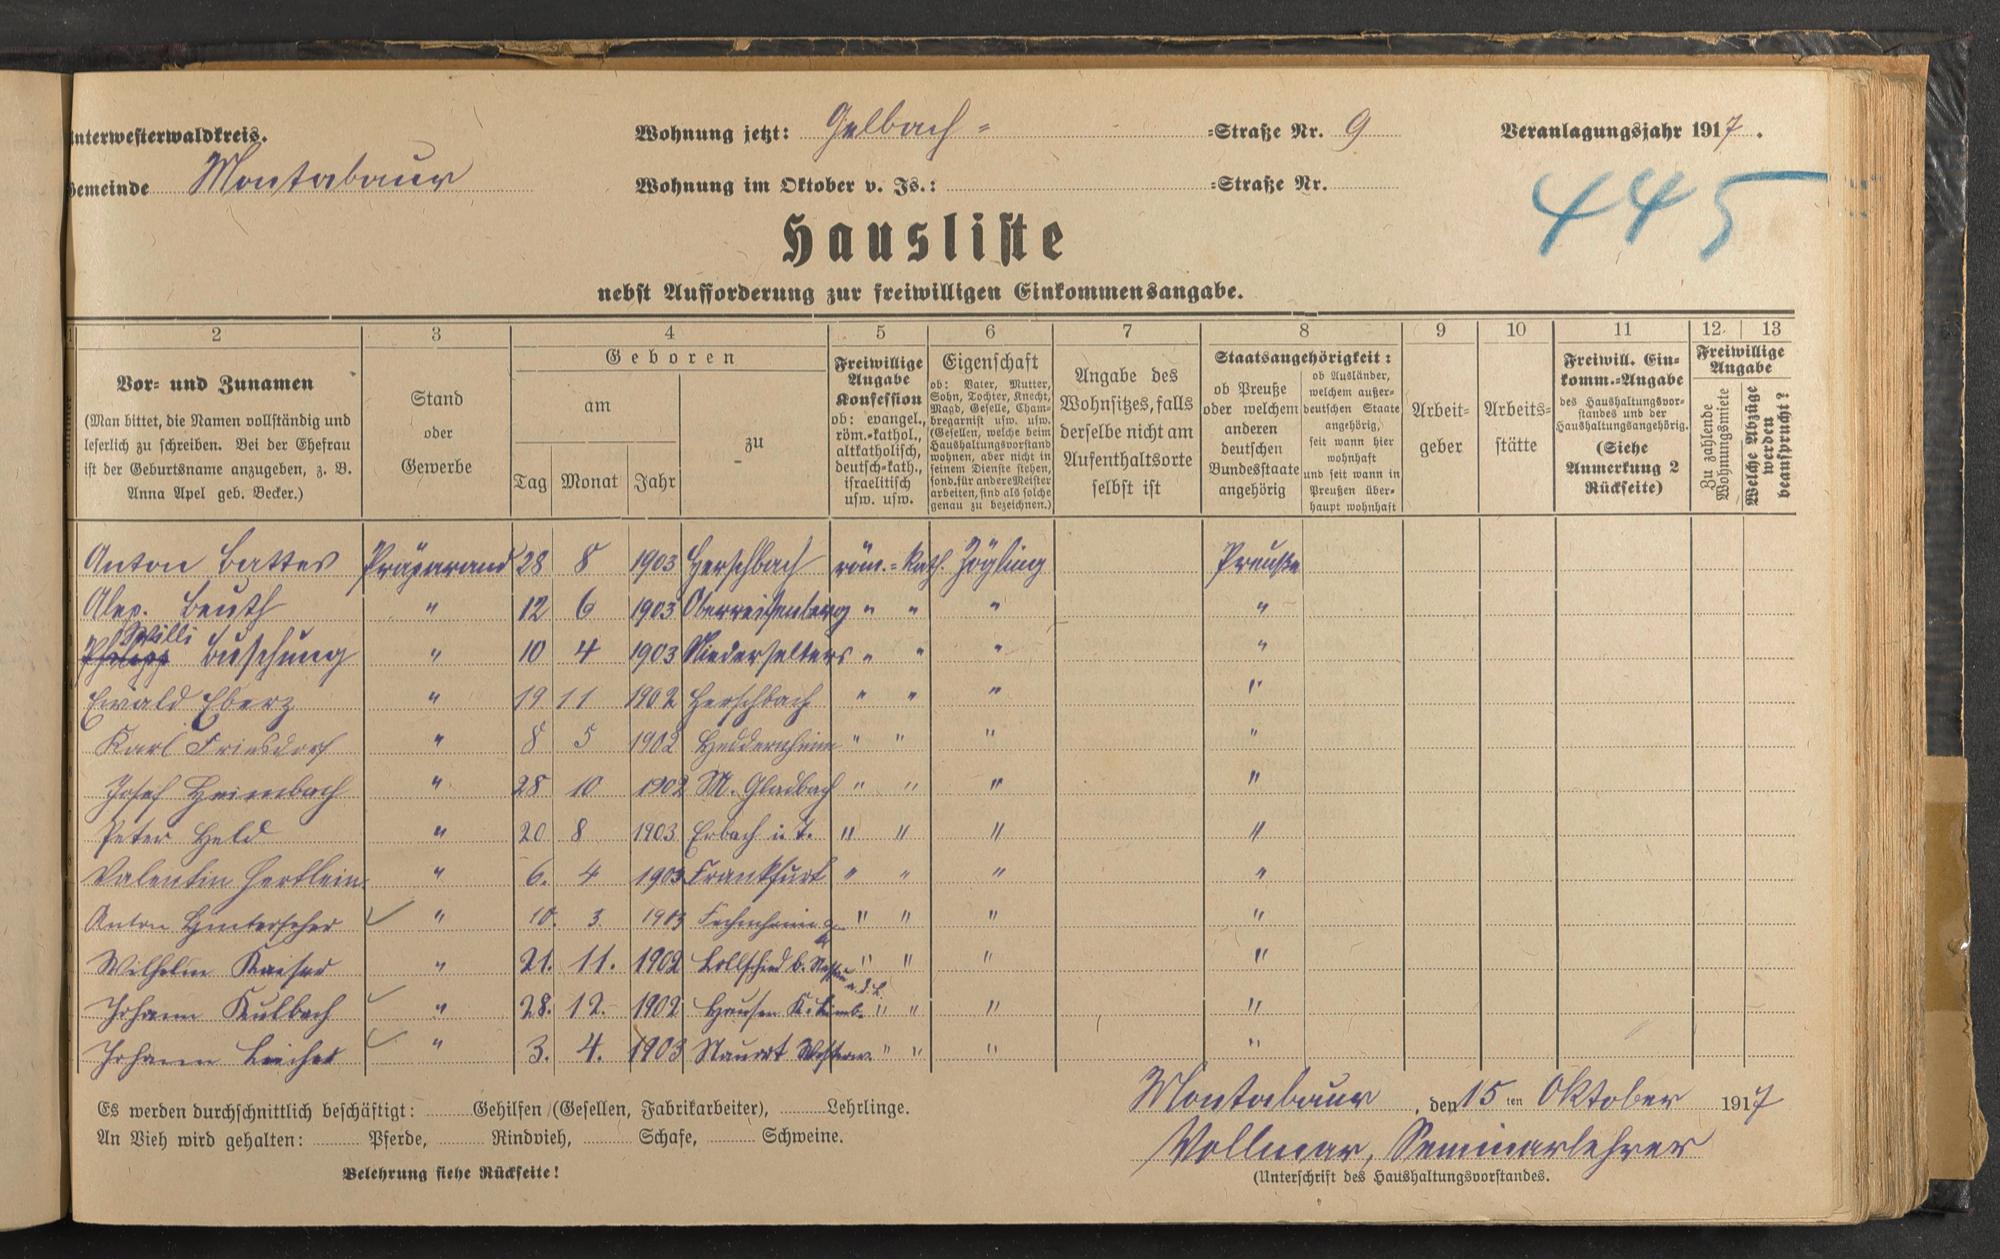 Unterwesterwaldkreis.
Wohnung jetzt: Gelbach- -Straße Nr. 9
Veranlagungsjahr 1917.
Gemeinde Montabaur
Wohnung im Oktober v. Js.: -Straße Nr.
445
Hausliste
nebst Aufforderung zur freiwilligen Einkommensangabe.
1 2 3 4 5 6 7 8 9 10 11 12. 13
Vor- und Zunamen
(Man bittet, die Namen vollständig und
leserlich zu schreiben. Bei der Ehefrau
ist der Geburtsname anzugeben, z. B.
Anna Apel geb. Becker.)
Stand
oder
Gewerbe
Geboren
am
Tag Monat Jahr
zu
Freiwillige
Angabe
Konfession
ob: evangel.,
röm.-kathol.,
altkatholisch,
deutsch-kath.,
israelitisch
usw. usw.
Eigenschaft
ob: Vater, Mutter,
Sohn, Tochter, Knecht,
Magd, Geselle, Cham-
bregarnist usw. usw.
(Gesellen, welche beim
Haushaltungsvorstand
wohnen, aber nicht in
seinem Dienste stehen,
sond. für andere Meister
arbeiten, sind als solche
genau zu bezeichnen.)
Angabe des
Wohnsitzes, falls
derselbe nicht am
Aufenthaltsorte
selbst ist
Staatsangehörigkeit:
ob Preuße
oder welchem
anderen
deutschen
Bundesstaate
angehörig
ob Ausländer,
welchem außer-
deutschen Staate
angehörig,
seit wann hier
wohnhaft
und seit wann in
Preußen über-
haupt wohnhaft
Arbeit-
geber
Arbeits-
stätte
Freiwill. Ein-
komm.-Angabe
des Haushaltungsvor-
standes und der
Haushaltungsangehörig.
(Siehe
Anmerkung 2
Rückseite)
Freiwillige
Angabe
Zu zahlende
Wohnungsmiete
Welche Abzüge
werden
beansprucht?
Anton Battes Präparand 28 8 1903 Herschbach röm.-kath. Zögling Preuße
Alex. Beuth " 12 6 1903 Oberreifenberg " " " "
Willi
Philipp Buschung " 10 4 1903 Niederselters " " " "
Ewald Eberz " 19 11 1902 Herschbach " " " "
Karl Friesdorf " 8 5 1902 Heddernheim " " " "
Josef Heimbach " 28 10 1902 M. Gladbach " " " "
Peter Held " 20 8 1903 Erbach i. T. " " " "
Valentin Hertlein " 6. 4 1903 Frankfurt " " " "
Anton " 10. 3 1903 Fechenheim " " " "
Wilhelm Kaiser " 21. 11. 1902 Lollschied b. Nassau a. d. L. " " " "
Johann Kulbach " 28. 12. 1902 Hausen K. Limb. " " " "
Johann Leicher " 3. 4. 1903 Nauort Westerw. " " " "
Es werden durchschnittlich beschäftigt: Gehilfen (Gesellen, Fabrikarbeiter), Lehrlinge.
An Vieh wird gehalten: Pferde, Rindvieh, Schafe, Schweine.
Belehrung siehe Rückseite!
Montabaur, den 15ten Oktober 1917
Vollmar, Seminarlehrer
(Unterschrift des Haushaltungsvorstandes.